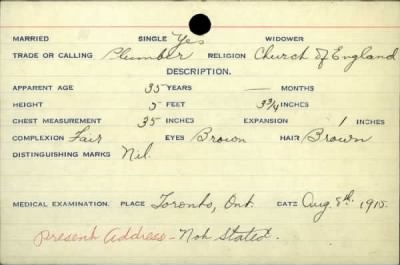 MARRIED SINGLE Yes WIDOWER
TRADE OR CALLING Plumber RELIGION Church of England
DESCRIPTION.
APPARENT AGE 35 YEARS — MONTHS
HEIGHT 5 FEET 3¾ INCHES
CHEST MEASUREMENT 35 INCHES EXPANSION 1 INCHES
COMPLEXION Fair EYES Brown HAIR Brown
DISTINGUISHING MARKS Nil.
MEDICAL EXAMINATION. PLACE Toronto, Ont. DATE Aug. 8th, 1915.
Present Address - Not Stated.